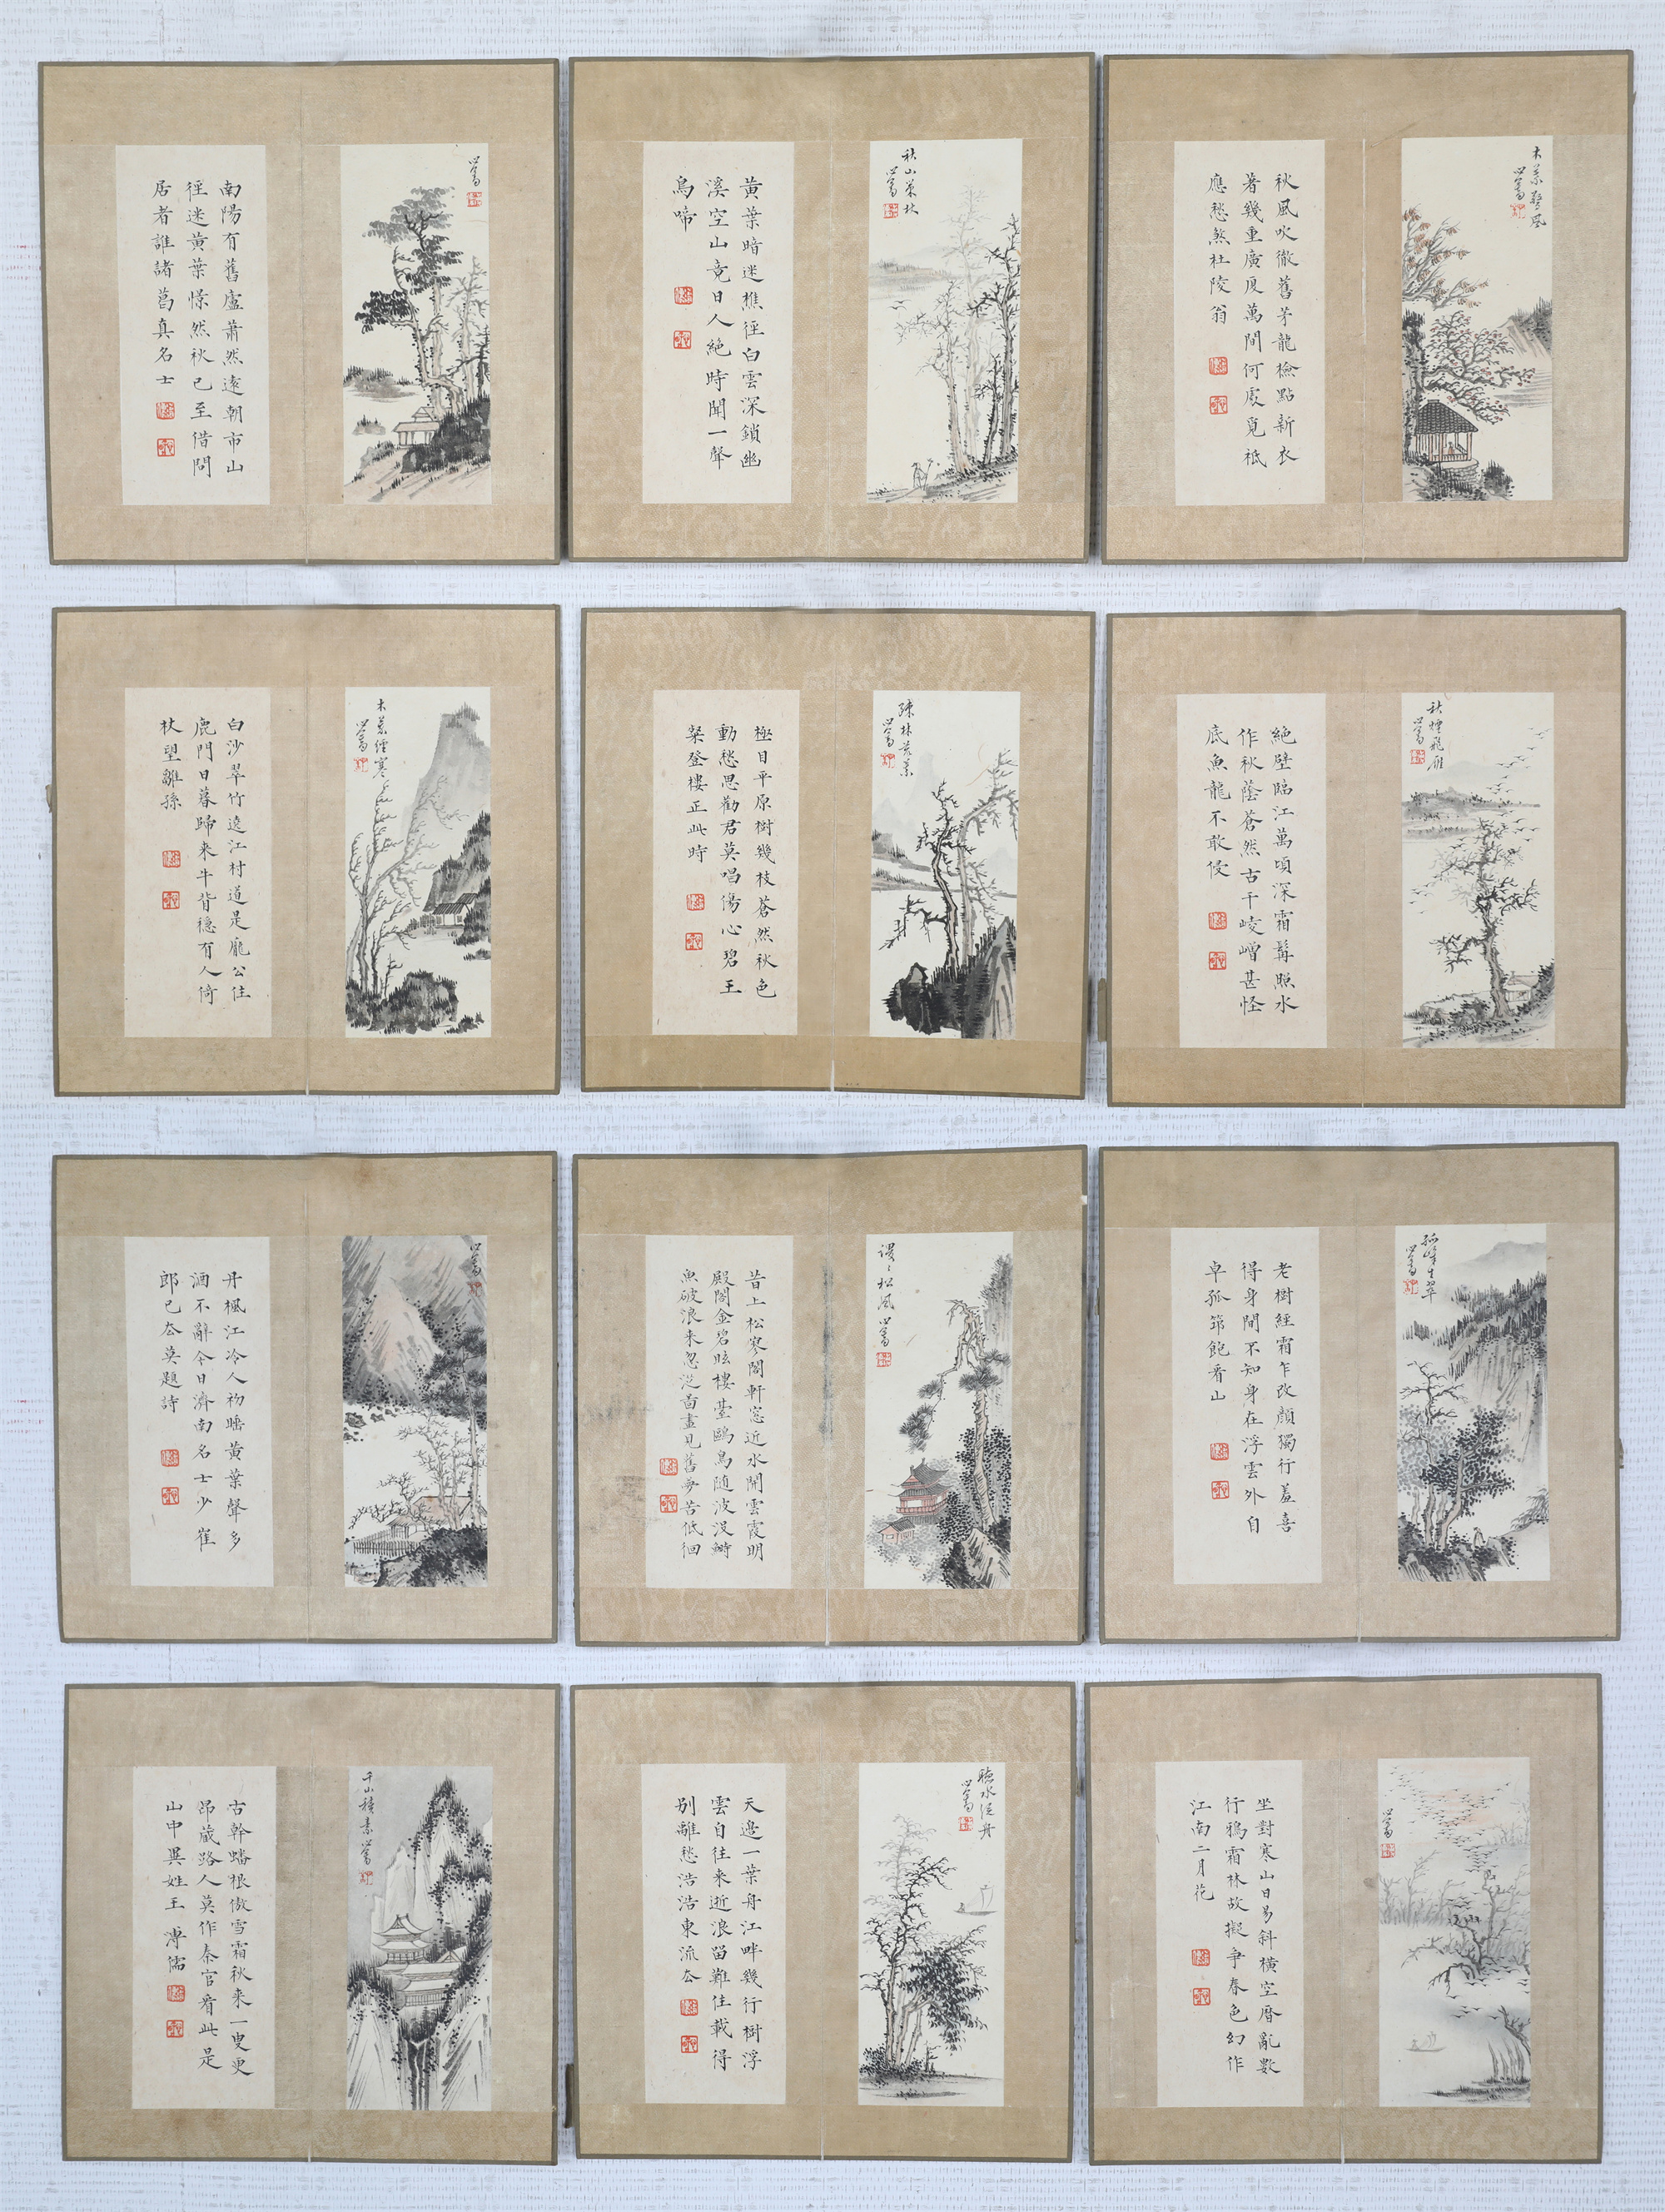 木葉
心畬
秋風吹徹舊茅龍檢點新衣
著幾重廣廈萬間何處覓祗
應愁煞杜陵翁
秋山葉林
心畬
黃葉暗迷樵徑白雲深鎖幽
溪空山竟日人絕時聞一聲
鳥啼
心畬
南陽有舊廬蕭然遠朝市山
徑迷黃葉憬然秋已至借問
居者誰諸葛真名士
秋煙飛雁
心畬
絕壁臨江萬頃深霜髯照水
作秋蔭蒼然古干崚嶒甚怪
底魚龍不敢侵
疎林黃葉
心畬
極目平原樹幾枝蒼然秋色
動愁思勸君莫唱傷心碧王
粲登樓正此時
木葉經寒
心畬
白沙翠竹遶江村道是龐公住
鹿門日暮歸來牛背穩有人倚
杖望離孫
孤峰生翠
心畬
老樹經霜乍改顏獨行羞喜
得身閒不知身在浮雲外自
卓孤筇飽看山
謖〻松風
心畬
昔上松寥閣軒窓近水開雲霞明
殿閣金碧眩樓臺鷗鳥隨波沒鰣
魚破浪来忽從畵畫見舊夢苦低徊
心畬
丹楓江冷人初醉黃葉聲多
酒不辭今日濟南名士少崔
郎已厺莫題詩
心畬
坐對寒山日易斜橫空磨亂數
行鴉霜林故擬爭春色幻作
江南二月花
聽水泛舟
心畬
天邊一葉舟江畔幾行樹浮
雲自往来逝浪留難住載得
別離愁浩浩東流厺
千山積素
心畬
古幹蟠根傲雪霜秋来一叟更
昂藏路人莫作秦官看此是
山中異姓王
溥儒